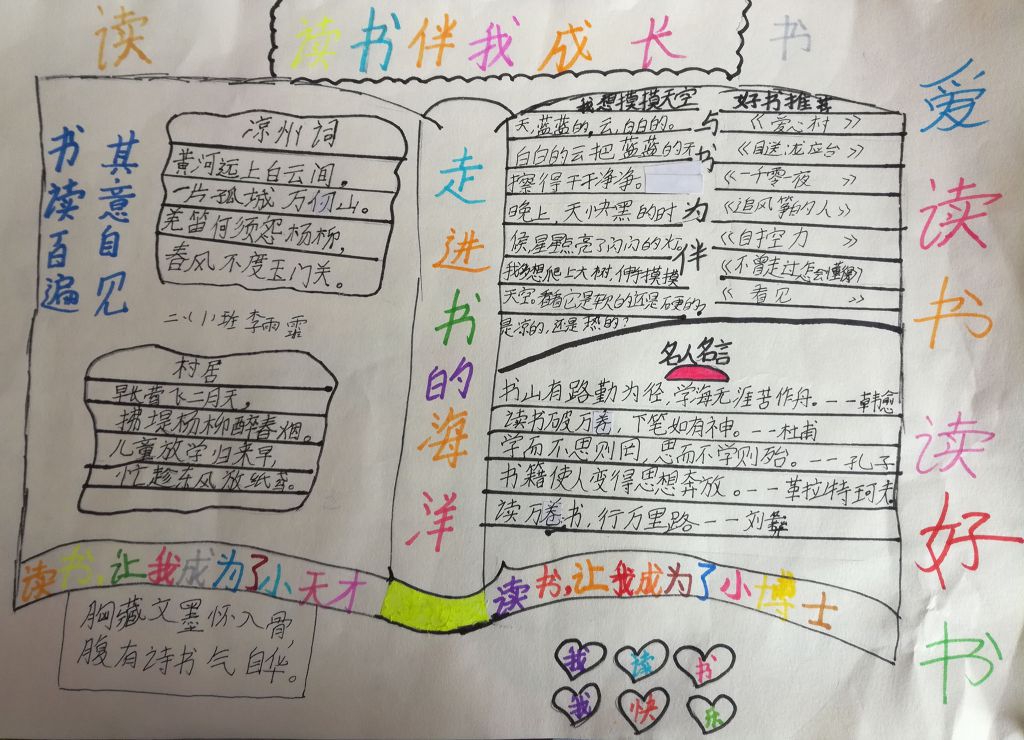 读
读书伴我成长
书
书读百遍
其意自见
凉州词
黄河远上白云间,
一片孤城万仞山。
羌笛何须怨杨柳,
春风不度玉门关。
二、(1)班 李雨霏
村居
草长莺飞二月天,
拂堤杨柳醉春烟。
儿童放学归来早,
忙趁东风放纸鸢。
走进书的海洋
我想摸摸天空
天,蓝蓝的,云,白白的。
白白的云把蓝蓝的天
擦得干干净净。
晚上,天快黑的时
候,星星点亮了闪闪的灯
我多想爬上大树,伸手摸摸
天空。看看它是软的还是硬的,
是凉的,还是热的?
与书为伴
好书推荐
《爱心村》
《目送:龙应台》
《一千零一夜》
《追风筝的人》
《自控力》
《不曾走过,怎会懂得》
《看见》
名人名言
书山有路勤为径,学海无涯苦作舟。——韩愈
读书破万卷,下笔如有神。——杜甫
学而不思则罔,思而不学则殆。——孔子
书籍使人变得思想奔放。——革拉特珂夫
读万卷书,行万里路——刘彝
读书,让我成为了小天才
读书,让我成为了小博士
胸藏文墨怀入骨,
腹有诗书气自华。
我读书
我快乐
爱读书
读好书